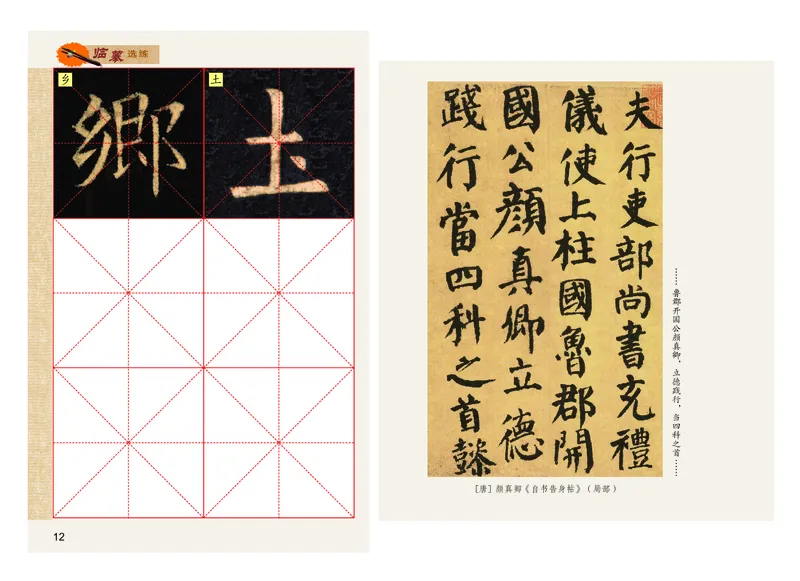 临摹选练
乡
土
鄉
土
12
夫行吏部尚書充禮
儀使上柱國魯郡開
國公顏真卿立德
踐行當四科之首懿
……鲁郡开国公颜真卿，立德践行，当四科之首……
［唐］颜真卿《自书告身帖》（局部）